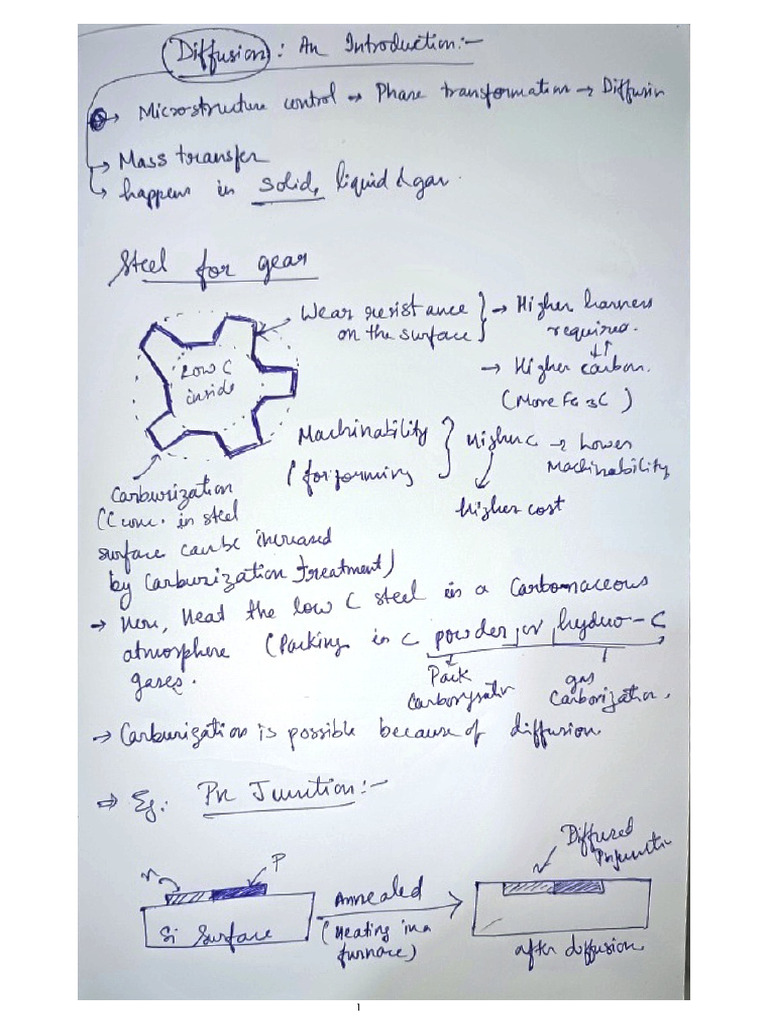 Diffusion: An Introduction:-
→ Microstructure control → Phase transformation → Diffusin
→ Mass transfer
→ happens in solid, liquid & gas.
Steel for gear
Wear resistance
on the surface
→ Higher harness
required.
→ Higher carbon.
(More Fe3C)
Low C
inside
Machinability
(for forming
Higher C → Lower
Machinability
Higher cost
Carburization
(C conc. in steel
surface can be increased
by Carburization treatment)
→ Here, Heat the low C steel in a Carbonaceous
atmosphere (Packing in C powder, or, hydro-C
gases.
Pack
gas
Carborization.
→ Carburization is possible because of diffusion.
⇒ Eg: Pn Junction:-
n
P
Si Surface
Annealed
(Heating in a
furnace)
Diffused
after diffusion.
1